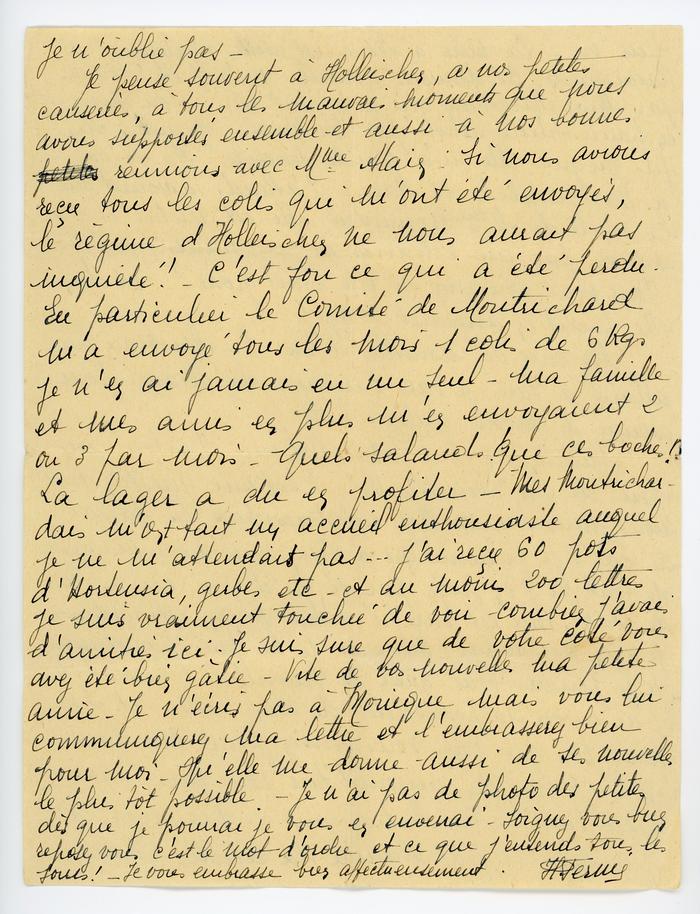 Je n'oublie pas -
Je pense souvent à Holleischen, à nos petites
causeries, à tous les mauvais moments que nous
avons supportés ensemble et aussi à nos bonnes
petites reunions avec Mme Si nous avions
reçu tous les colis qui m'ont été envoyés,
le régime d'Holleischen ne nous aurait pas
inquiété! - C'est fou ce qui a été perdu.
En particulier le Comité de Montrichard
m'a envoyé tous les mois 1 colis de 6 Kgs
je n'en ai jamais eu un seul - ma famille
et mes amis en plus m'en envoyaient 2
ou 3 par mois - Quels salauds que ces boches!
La lager a du en profiter - Mes Montrichar-
dais m'ont fait un accueil enthousiaste auquel
je ne m'attendait pas... j'ai reçu 60 pots
d'Hortensia, gerbes etc - et au moins 200 lettres
je suis vraiment touchée de voir combien j'avais
d'amitiés ici. Je suis sure que de votre côté vous
avez été bien gâtée - Vite de vos nouvelles ma petite
amie - Je n'écris pas à Monique mais vous lui
communiquerez ma lettre et l'embrasserez bien
pour moi. Qu'elle me donne aussi de ses nouvelles
le plus tôt possible - Je n'ai pas de photo des petites
dès que je pourrai je vous en enverrai - Soignez vous bien
reposez vous c'est le mot d'ordre et ce que j'entends tous les
jours! - Je vous embrasse bien affectueusement.